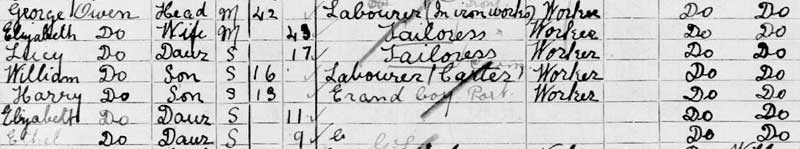 George Owen Head M 42 Labourer (In iron works) Worker Do Do
Elizabeth Do Wife M 43 Tailoress Worker Do Do
Lucy Do Daur S 17 Tailoress Worker Do Do
William Do Son S 16 Labourer (Carter) Worker Do Do
Harry Do Son S 13 Erand boy Port. Worker Do Do
Elizabeth Do Daur S 11 Do Do
Ethel Do Daur S 9 Do Do